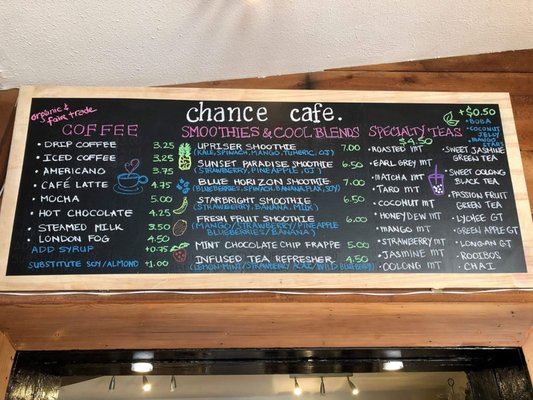 organic &
fair trade
chance cafe.
COFFEE
DRIP COFFEE 3.25
ICED COFFEE 3.25
AMERICANO 3.75
CAFÉ LATTE 4.75
MOCHA 5.00
HOT CHOCOLATE 4.25
STEAMED MILK 3.50
LONDON FOG 4.50
ADD SYRUP +0.75
SUBSTITUTE SOY/ALMOND +1.00
SMOOTHIES & COOL BLENDS
UPRISER SMOOTHIE 7.00
(KALE, SPINACH, MANGO, TUMERIC, OJ)
SUNSET PARADISE SMOOTHIE 6.50
(STRAWBERRY, PINEAPPLE, OJ)
BLUE HORIZON SMOOTHIE 7.00
(BLUEBERRIES, SPINACH, BANANA, FLAX, SOY)
STARBRIGHT SMOOTHIE 6.50
(STRAWBERRY, BANANA, MILK)
FRESH FRUIT SMOOTHIE 6.00
(MANGO/STRAWBERRY/PINEAPPLE
BLUEBERRIES/BANANA)
MINT CHOCOLATE CHIP FRAPPE 5.00
INFUSED TEA REFRESHER 4.50
(LEMON-MINT/STRAWBERRY ACAI/WILD BLUEBERRY)
SPECIALTY TEAS
$4.50
ROASTED MT
EARL GREY MT
MATCHA MT
TARO MT
COCONUT MT
HONEYDEW MT
MANGO MT
STRAWBERRY MT
JASMINE MT
OOLONG MT
+ $0.50
BOBA
COCONUT
JELLY
MANGO
STARS
SWEET JASMINE
GREEN TEA
SWEET OOLONG
BLACK TEA
PASSION FRUIT
GREEN TEA
LYCHEE GT
GREEN APPLE GT
LONGAN GT
ROOIBOS
CHAI